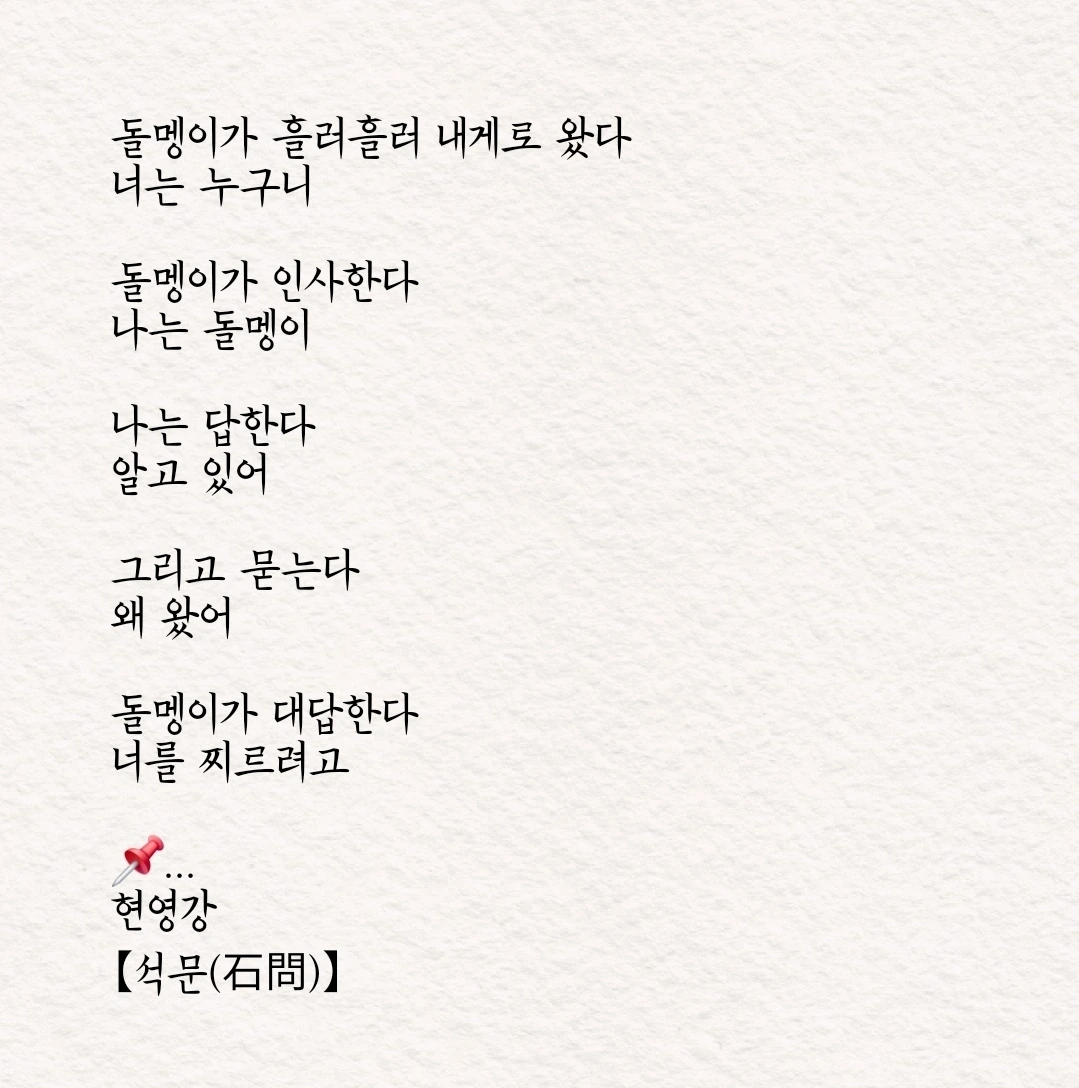 돌멩이가 흘러흘러 내게로 왔다
너는 누구니
돌멩이가 인사한다
나는 돌멩이
나는 답한다
알고 있어
그리고 묻는다
왜 왔어
돌멩이가 대답한다
너를 찌르려고
📌...
현영강
【석문(石問)】